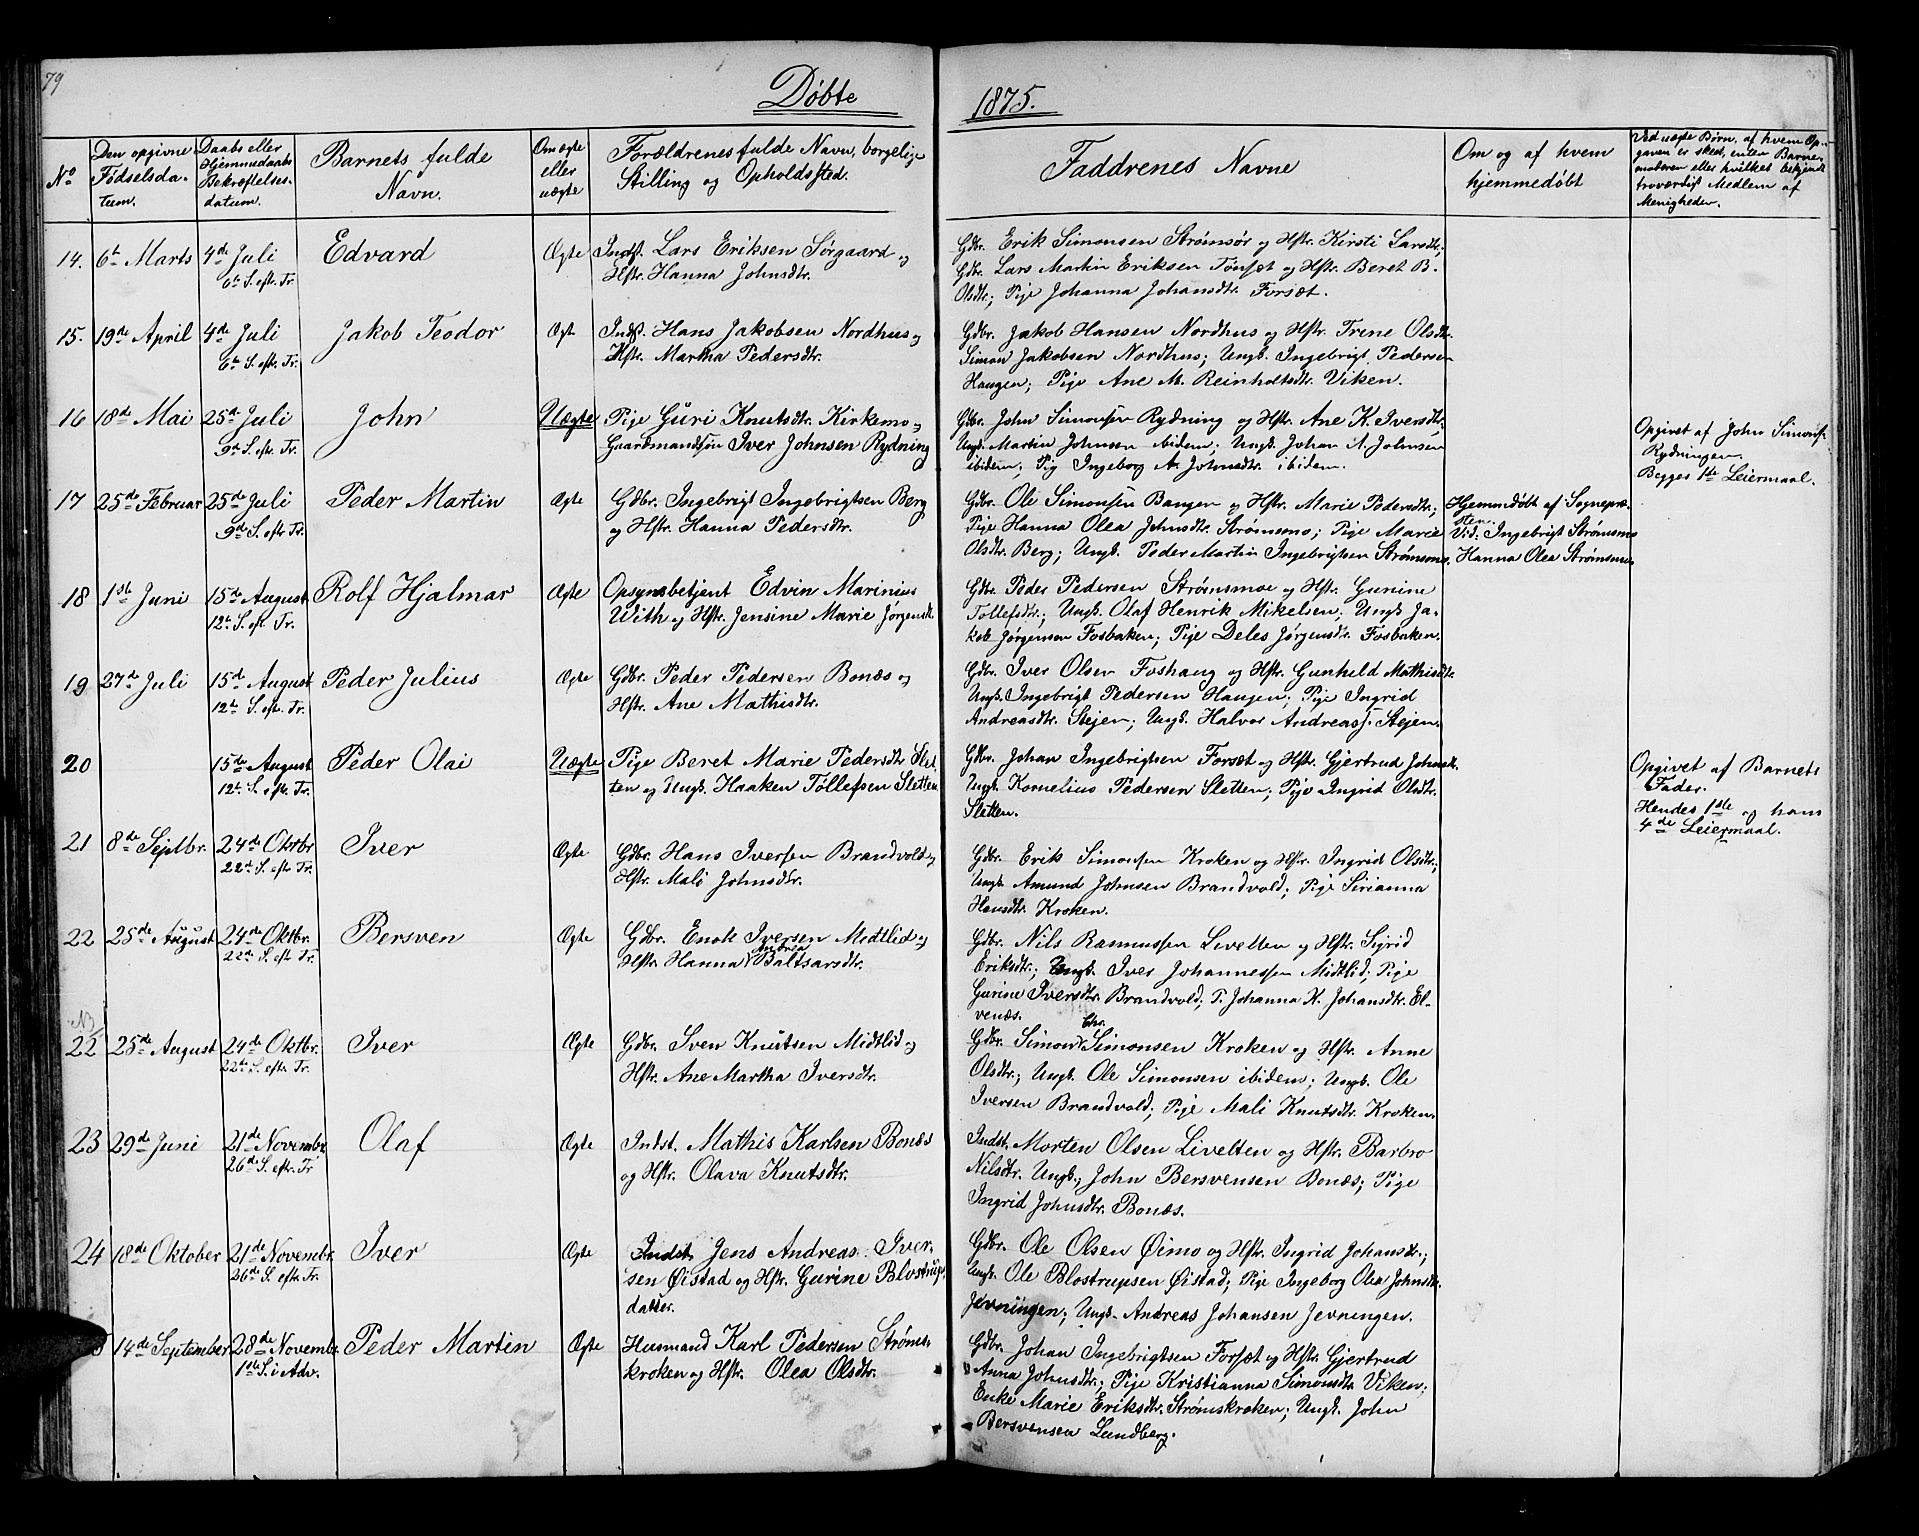 79
Döbte 1875.
No
Den opgivne Födselsdatum.
Daabs eller Hjemmedaabs Bekræftelsesdatum.
Barnets fulde Navn.
Om ægte eller uægte
Forældrenes fulde Navn, borgelige Stilling og Opholdssted.
Faddrenes Navne
Om og af hvem hjemmedöbt
Ved uægte Börn, af hvem Opgaven er skeet, enten Barnemoderen eller hvilket bekjendt troværdigt Medlem af Menigheden.
14. 6te Marts 4de Juli Edvard Ægte Indst. Lars Eriksen Sörgaard og
6te S. eftr. Tr. Hstr. Hanna Johnsdtr.
Gdbr. Erik Simonsen Strömsör og Hstr. Kirsti Larsdtr;
Gdbr. Lars Martin Eriksen Tönset og Hstr. Beret B.
Olsdtr; Pige Johanna Johansdtr. Forsæt.
15. 19de April 4de Juli Jakob Teodor Ægte Indst. Hans Jakobsen Nordhus og
6te S. eftr. Tr. Hstr. Martha Pedersdtr.
Gdbr. Jakob Hansen Nordhus og Hstr. Trene Olsdtr
Simon Jakobsen Nordhus; Ungk. Ingebrigt Pedersen
Haugen; Pige Ane M. Reinholtsdtr. Viken.
16 18de Mai 25de Juli John Uægte Pige Guri Knutsdtr. Kirkemo og
9de S. eftr. Tr. Gaardmandssön Iver Johnsen Rydning
Gdbr. John Simonsen Rydning og Hstr. Ane K. Iversdtr;
Ungk. Martin Johnsen ibidem; Ungk. Johan A. Johnsen
ibidem; Pig Ingeborg A. Johnsdtr. ibidem.
Opgivet af John Simons.
Rydningen.
Begges 1ste Leiermaal.
17 25de Februar 25de Juli Peder Martin Ægte Gdbr. Ingebrigt Ingebrigtsen Berg
9de S. eftr Tr. og Hstr. Hanna Pedersdtr.
Gdbr. Ole Simonsen Bangen og Hstr. Marie Pedersdtr;
Pige Hanna Olea Johnsdtr. Strömsmo; Pige Marie
Olsdtr. Berg; Ungk. Peder Martin Ingebrigtsen Strömsmo.
Hjemmdöbt af Sognepræsten.
Vid. Ingebrigt Strömsmo
Hanna Olea Strömsmo
18 1ste Juni 15de August Rolf Hjalmar Ægte Opsynsbetjent Edvin Marinius
12te S. eft Tr. With og Hstr. Jensine Marie Jörgensdt.
Gdbr. Peder Pedersen Strömsmoe og Hstr. Gunine
Tollefsdtr; Ungk. Olaf Henrik Mikelsen; Ungk Jakob
Jörgensen Fosbaken; Pige Deles Jörgensdtr. Fosbaken.
19 27de Juli 15de August Peder Julius Ægte Gdbr. Peder Pedersen Bonæs og
12te S. eft. Tr. Hstr. Ane Mathisdtr.
Gdbr. Iver Olsen Foshaug og Hstr. Gunheld Mathisdtr.
Ungk. Ingebrigt Pedersen Haugen; Pige Ingrid
Andreasdtr. Stejen; Ungk. Halvor Andreass. Stejen.
20 15de August Peder Olai Uægte Pige Beret Marie Pedersdtr Sletten
12te S. eft. Tr. og Ungk. Haaken Töllefsen Sletten
Gdbr. Johan Ingebrigtsen Forsæt og Hstr. Gjertrud Johnsdtr.
Ungk. Kornelius Pedersen Sletten; Pige Ingrid Olsdtr.
Sletten.
Opgivet af Barnets
Fader.
Hendes 1ste og hans
4de Leiermaal.
21 8de Septbr. 24de Oktbr Iver Ægte Gdbr. Hans Iversen Brandvold og
22de S. eftr Tr. Hstr. Malö Johnsdtr.
Gdbr. Erik Simonsen Kroken og Hstr. Ingrid Olsdtr;
Ungk. Amund Johnsen Brandvold; Pige Sirianna
Hansdtr. Kroken.
22 25de August 24de Oktbr. Bersven Ægte Gdbr. Enok Iversen Midtlid og
22de S. eft. Tr. Hstr. Hanna Andrea Baltsarsdtr.
Gdbr. Nils Rasmussen Livelten og Hstr. Sigrid
Eriksdtr; Ungk. Iver Johannessen Midtlid; Pige
Gurine Iversdtr. Brandvold; P. Johanna K. Johansdtr. Elvenæs.
NB
22 25de August 24de Oktbr. Iver Ægte Gdbr. Sven Knutsen Midtlid og
22de S. eftr Tr. Hstr. Ane Martha Iversdtr.
Gdbr. Simon Chr. Simonsen Kroken og Hstr. Anne
Olsdtr; Ungk. Ole Simonsen ibidem; Ungk. Ole
Iversen Brandvold; Pige Mali Knutsdtr. Kroken.
23 29de Juni 21de Novembr Olaf Ægte Indst. Mathis Karlsen Bonæs
26de S. eftr. Tr og Hstr. Olava Knutsdtr.
Indst. Morten Olsen Livelten og Hstr. Barbro
Nilsdtr. Ungk. John Bersvensen Bonæs; Pige
Ingrid Johnsdtr. Bonæs.
24 18de Oktober 21de Novembr. Iver Ægte Indst. Jens Andreas Iversen
26de S. eftr. Tr. Öistad og Hstr. Gurine Blostrupsdatter.
Gdbr. Ole Olsen Öimo og Hstr. Ingrid Johansdtr;
Ungk. Ole Blostrupsen Öistad; Pige Ingeborg Olea Johnsdtr.
Jevningen; Ungk. Andreas Johansen Jevningen.
14de September 28de Novembr. Peder Martin Ægte Husmand Karl Pedersen Strömskroken
1ste S. i Adv. og Hstr. Olea Olsdtr.
Gdbr. Johan Ingebrigtsen Forsæt og Hstr. Gjertrud
Anna Johnsdtr; Pige Kristianna Simonsdtr. Viken;
Enke Marie Eriksdtr. Strömskroken; Ungk. John
Bersvensen Lundberg.